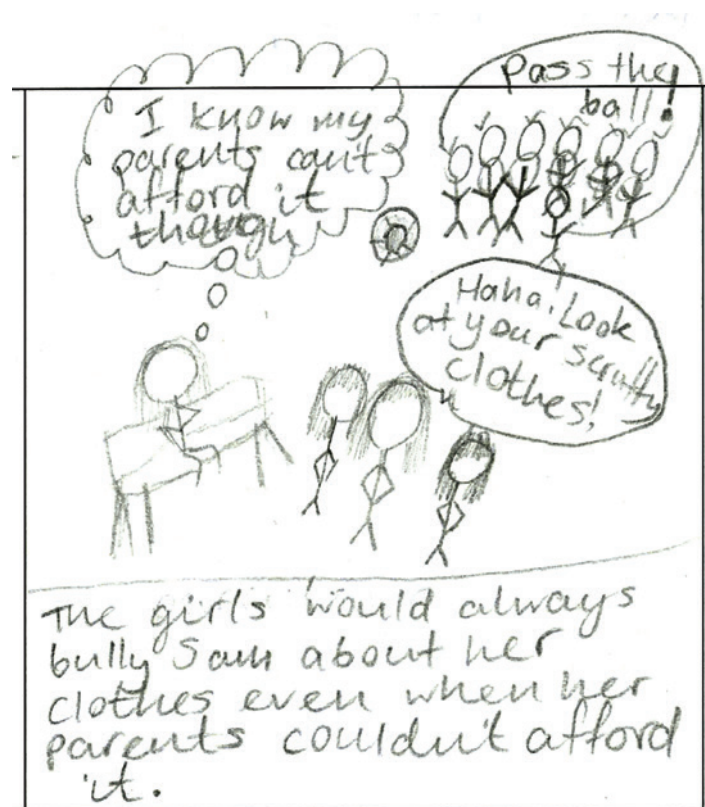 I know my
parents can't
afford it
though
Pass the
ball!
Haha, Look
at your scruffy
clothes!
The girls would always
bully Sam about her
clothes even when her
parents couldn't afford
it.